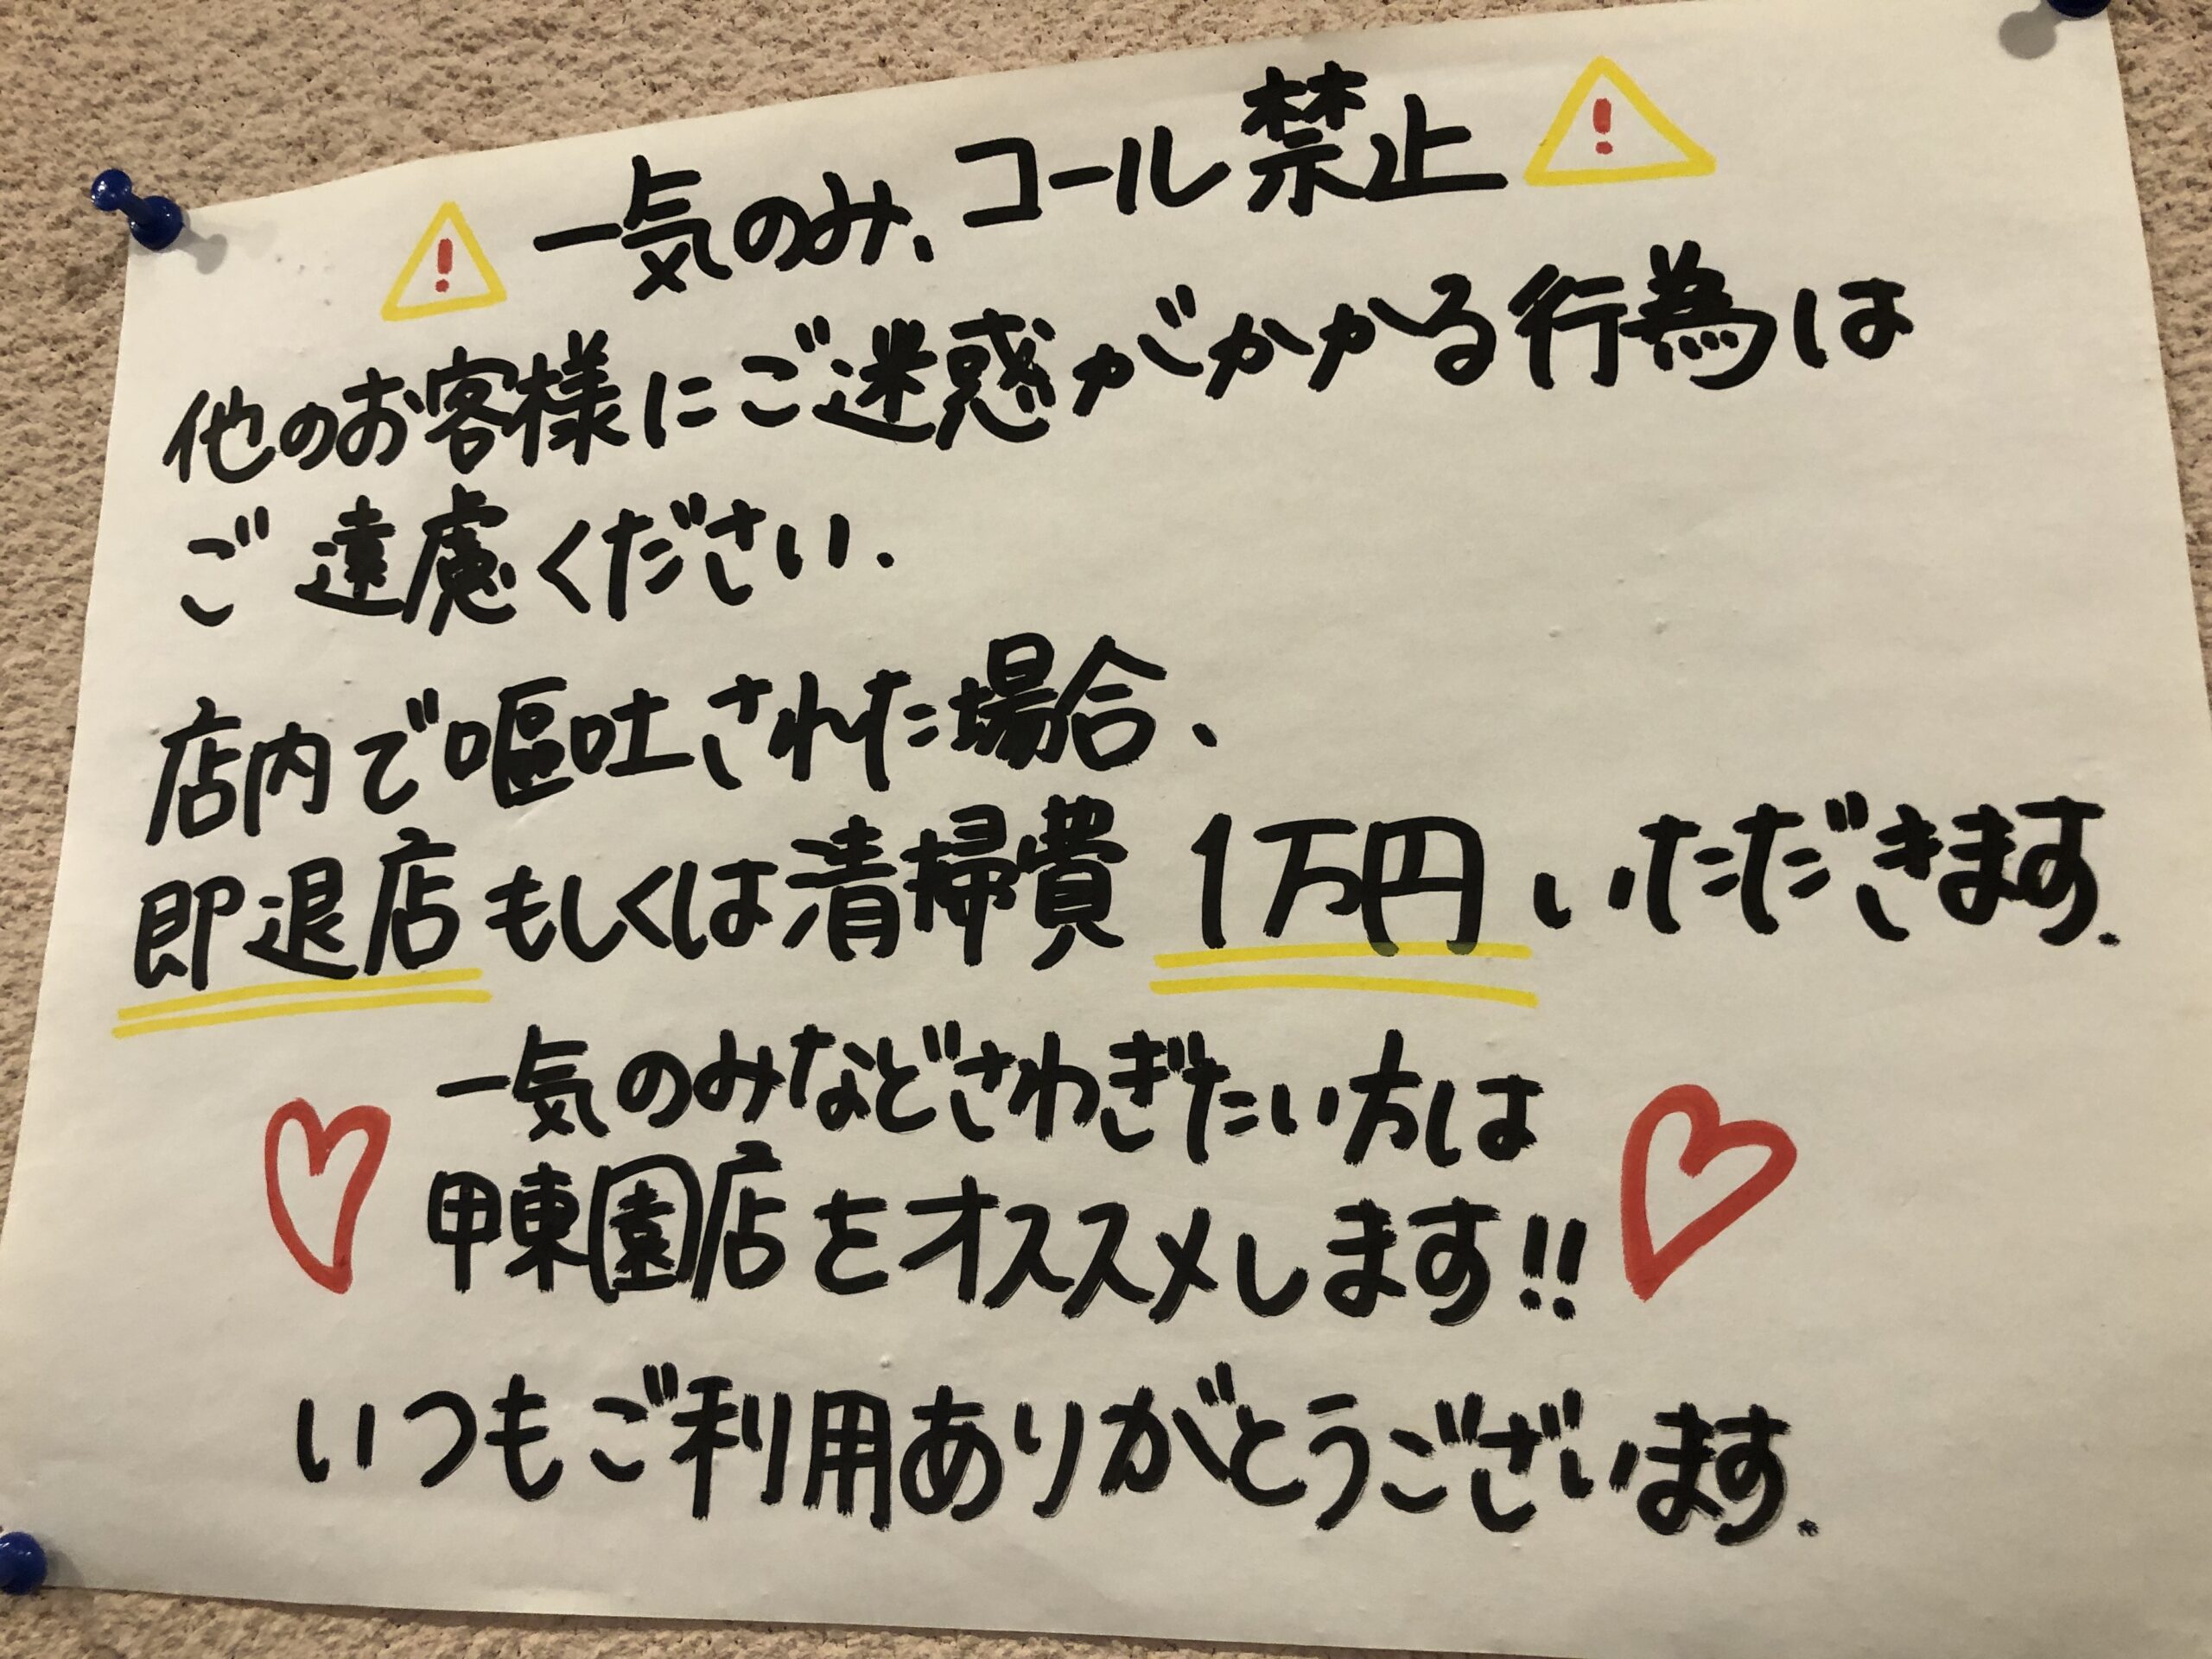 一気のみ、コール禁止
他のお客様にご迷惑がかかる行為は
ご遠慮ください.
店内で嘔吐された場合、
即退店もしくは清掃費 1万円いただきます.
一気のみなどさわぎたい方は
甲東園店をオススメします!!
いつもご利用ありがとうございます.